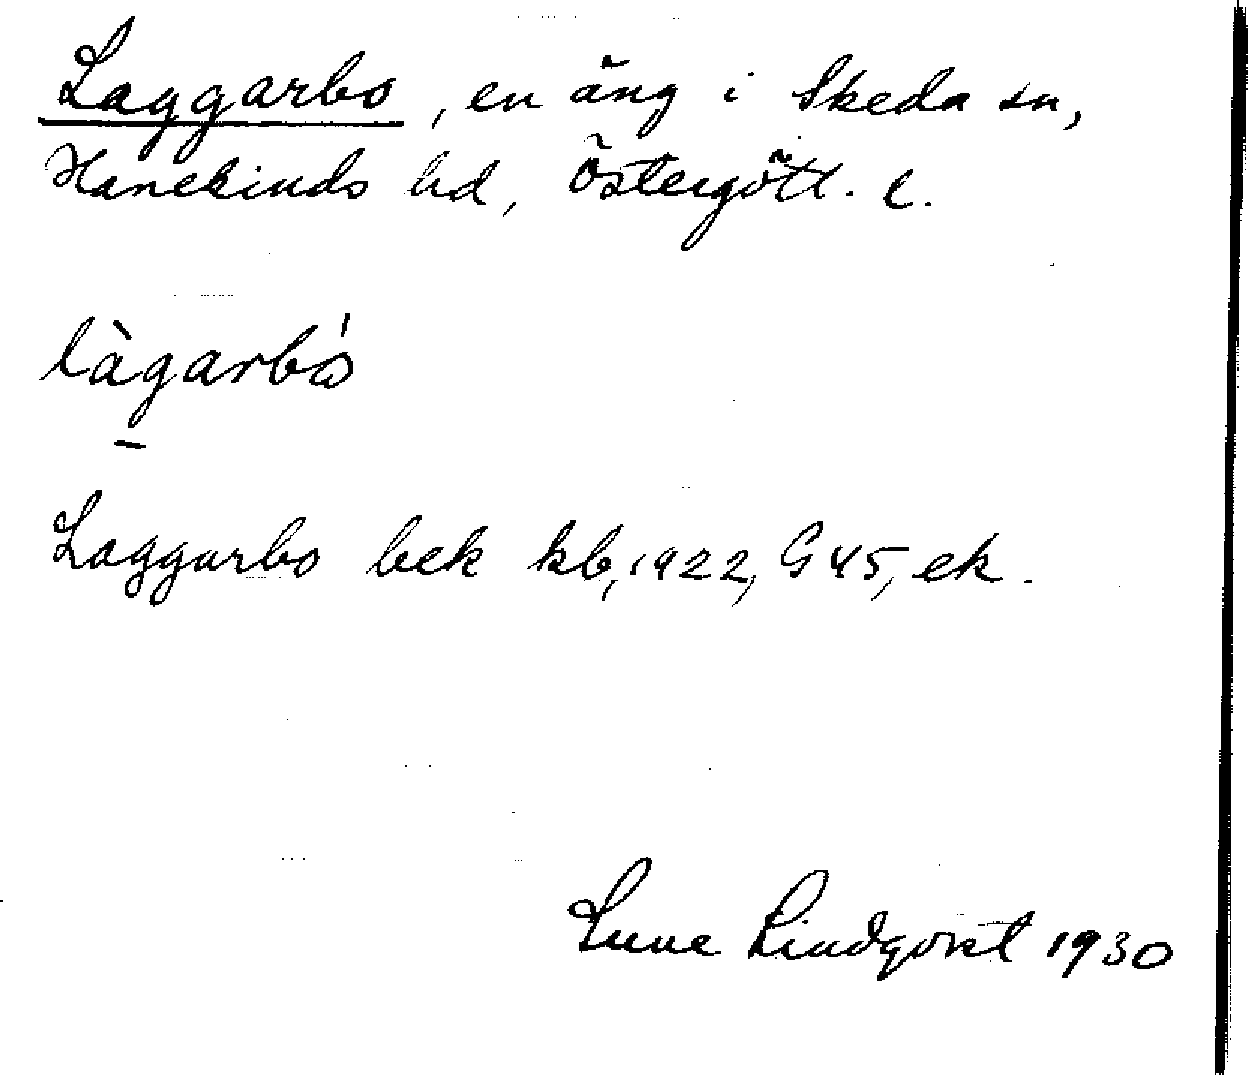 Laggarbo, en äng i Skeda sn,
Hanekinds hd, Östergötl. l.
làgarbó
Laggarbo bek kb, 1922, G 45, ek.
Sune Lindqvist 1930